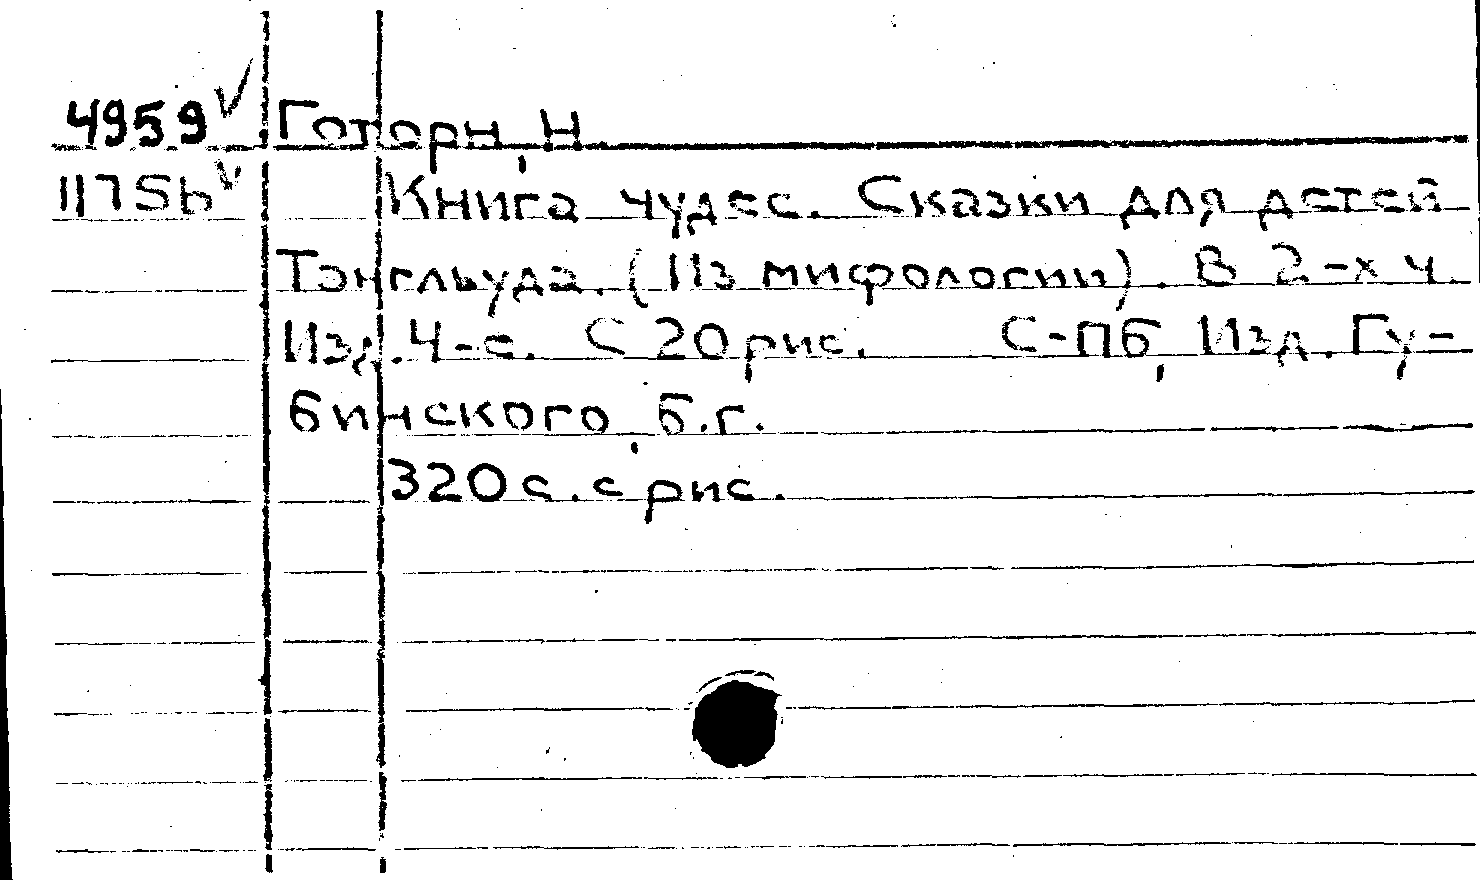 4959 √ Готорн, Н.
1175ь √ Книга чудес. Сказки для детей
Тэнгльуда. (Из мифологии). В 2-х ч.
Изд. 4-е. С 20 рис. С-Пб, Изд. Гу-
бинского, б.г.
320 с. с рис.